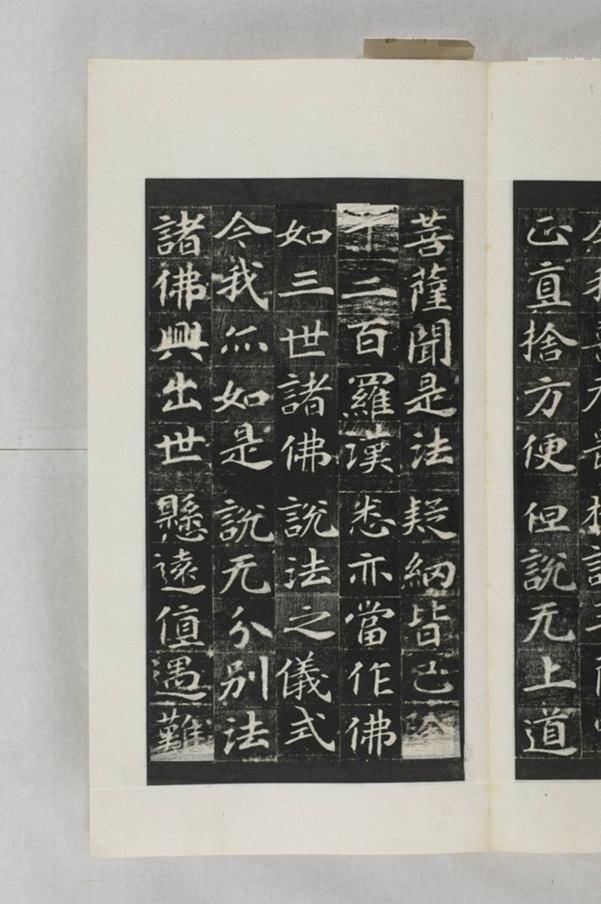 正直捨方便但說无上道
菩薩聞是法疑網皆已除
千二百羅漢悉亦當作佛
如三世諸佛說法之儀式
今我亦如是說无分別法
諸佛興出世懸遠值遇難